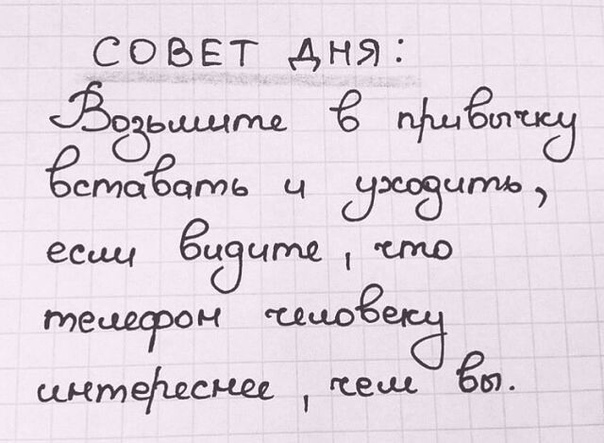 СОВЕТ ДНЯ:
Возьмите в привычку
вставать и уходить,
если видите, что
телефон человеку
интереснее, чем вы.